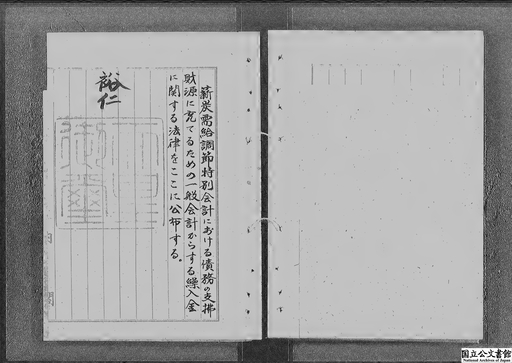 薪炭需給調節特別会計における債務の支拂
財源に充てるための一般会計からする繰入金
に関する法律をここに公布する。
裕仁
国立公文書館
National Archives of Japan